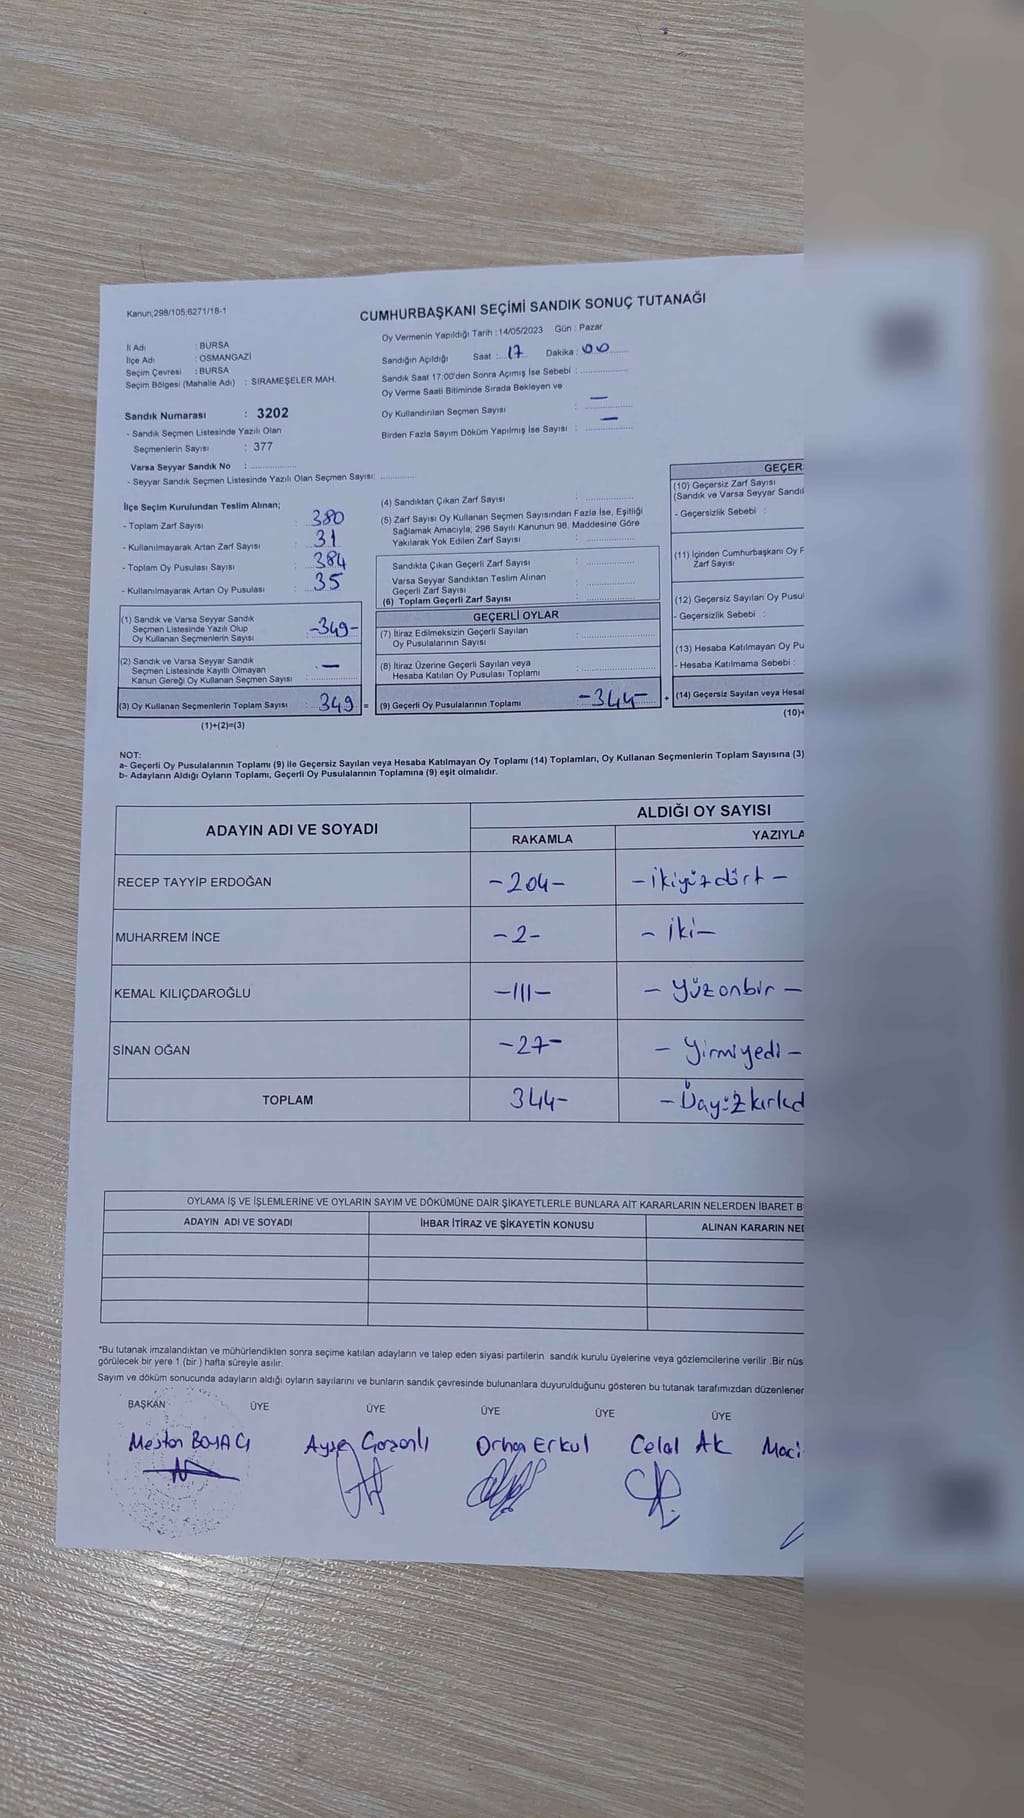 Kanun;298/105;6271/18-1
CUMHURBAŞKANI SEÇİMİ SANDIK SONUÇ TUTANAĞI
Oy Vermenin Yapıldığı Tarih : 14/05/2023 Gün : Pazar
İl Adı : BURSA
İlçe Adı : OSMANGAZİ
Seçim Çevresi : BURSA
Seçim Bölgesi (Mahalle Adı) : SIRAMEŞELER MAH.
Sandığın Açıldığı Saat : 17 Dakika : 00
Sandık Saat 17:00'den Sonra Açımış İse Sebebi :
Oy Verme Saati Bitiminde Sırada Bekleyen ve
Oy Kullandırılan Seçmen Sayısı : —
Birden Fazla Sayım Döküm Yapılmış İse Sayısı : —
Sandık Numarası : 3202
- Sandık Seçmen Listesinde Yazılı Olan
Seçmenlerin Sayısı : 377
Varsa Seyyar Sandık No :
- Seyyar Sandık Seçmen Listesinde Yazılı Olan Seçmen Sayısı:
İlçe Seçim Kurulundan Teslim Alınan;
- Toplam Zarf Sayısı : 380
- Kullanılmayarak Artan Zarf Sayısı : 31
- Toplam Oy Pusulası Sayısı : 384
- Kullanılmayarak Artan Oy Pusulası : 35
(1) Sandık ve Varsa Seyyar Sandık
Seçmen Listesinde Yazılı Olup
Oy Kullanan Seçmenlerin Sayısı -349-
(2) Sandık ve Varsa Seyyar Sandık
Seçmen Listesinde Kayıtlı Olmayan
Kanun Gereği Oy Kullanan Seçmen Sayısı : —
(3) Oy Kullanan Seçmenlerin Toplam Sayısı : 349 =
(1)+(2)=(3)
(4) Sandıktan Çıkan Zarf Sayısı :
(5) Zarf Sayısı Oy Kullanan Seçmen Sayısından Fazla İse, Eşitliği
Sağlamak Amacıyla; 298 Sayılı Kanunun 98. Maddesine Göre
Yakılarak Yok Edilen Zarf Sayısı :
Sandıkta Çıkan Geçerli Zarf Sayısı :
Varsa Seyyar Sandıktan Teslim Alınan
Geçerli Zarf Sayısı :
(6) Toplam Geçerli Zarf Sayısı :
GEÇERLİ OYLAR
(7) İtiraz Edilmeksizin Geçerli Sayılan
Oy Pusulalarının Sayısı :
(8) İtiraz Üzerine Geçerli Sayılan veya
Hesaba Katılan Oy Pusulası Toplamı :
(9) Geçerli Oy Pusulalarının Toplamı -344- +
GEÇER
(10) Geçersiz Zarf Sayısı
(Sandık ve Varsa Seyyar Sandı
- Geçersizlik Sebebi :
(11) İçinden Cumhurbaşkanı Oy P
Zarf Sayısı
(12) Geçersiz Sayılan Oy Pusul
- Geçersizlik Sebebi :
(13) Hesaba Katılmayan Oy Pu
- Hesaba Katılmama Sebebi :
(14) Geçersiz Sayılan veya Hesal
(10)+
NOT:
a- Geçerli Oy Pusulalarının Toplamı (9) ile Geçersiz Sayılan veya Hesaba Katılmayan Oy Toplamı (14) Toplamları, Oy Kullanan Seçmenlerin Toplam Sayısına (3)
b- Adayların Aldığı Oyların Toplamı, Geçerli Oy Pusulalarının Toplamına (9) eşit olmalıdır.
ADAYIN ADI VE SOYADI
ALDIĞI OY SAYISI
RAKAMLA YAZIYLA
RECEP TAYYİP ERDOĞAN -204- -ikiyüzdört-
MUHARREM İNCE -2- -iki-
KEMAL KILIÇDAROĞLU -111- -Yüzonbir-
SİNAN OĞAN -27- -Yirmiyedi-
TOPLAM 344-
OYLAMA İŞ VE İŞLEMLERİNE VE OYLARIN SAYIM VE DÖKÜMÜNE DAİR ŞİKAYETLERLE BUNLARA AİT KARARLARIN NELERDEN İBARET B
ADAYIN ADI VE SOYADI İHBAR İTİRAZ VE ŞİKAYETİN KONUSU ALINAN KARARIN NE
*Bu tutanak imzalandıktan ve mühürlendikten sonra seçime katılan adayların ve talep eden siyasi partilerin sandık kurulu üyelerine veya gözlemcilerine verilir .Bir nüs
görülecek bir yere 1 (bir ) hafta süreyle asılır.
Sayım ve döküm sonucunda adayların aldığı oyların sayılarını ve bunların sandık çevresinde bulunanlara duyurulduğunu gösteren bu tutanak tarafımızdan düzenlener
BAŞKAN ÜYE ÜYE ÜYE ÜYE ÜYE
BOYACI Orhan Erkul Celal AK